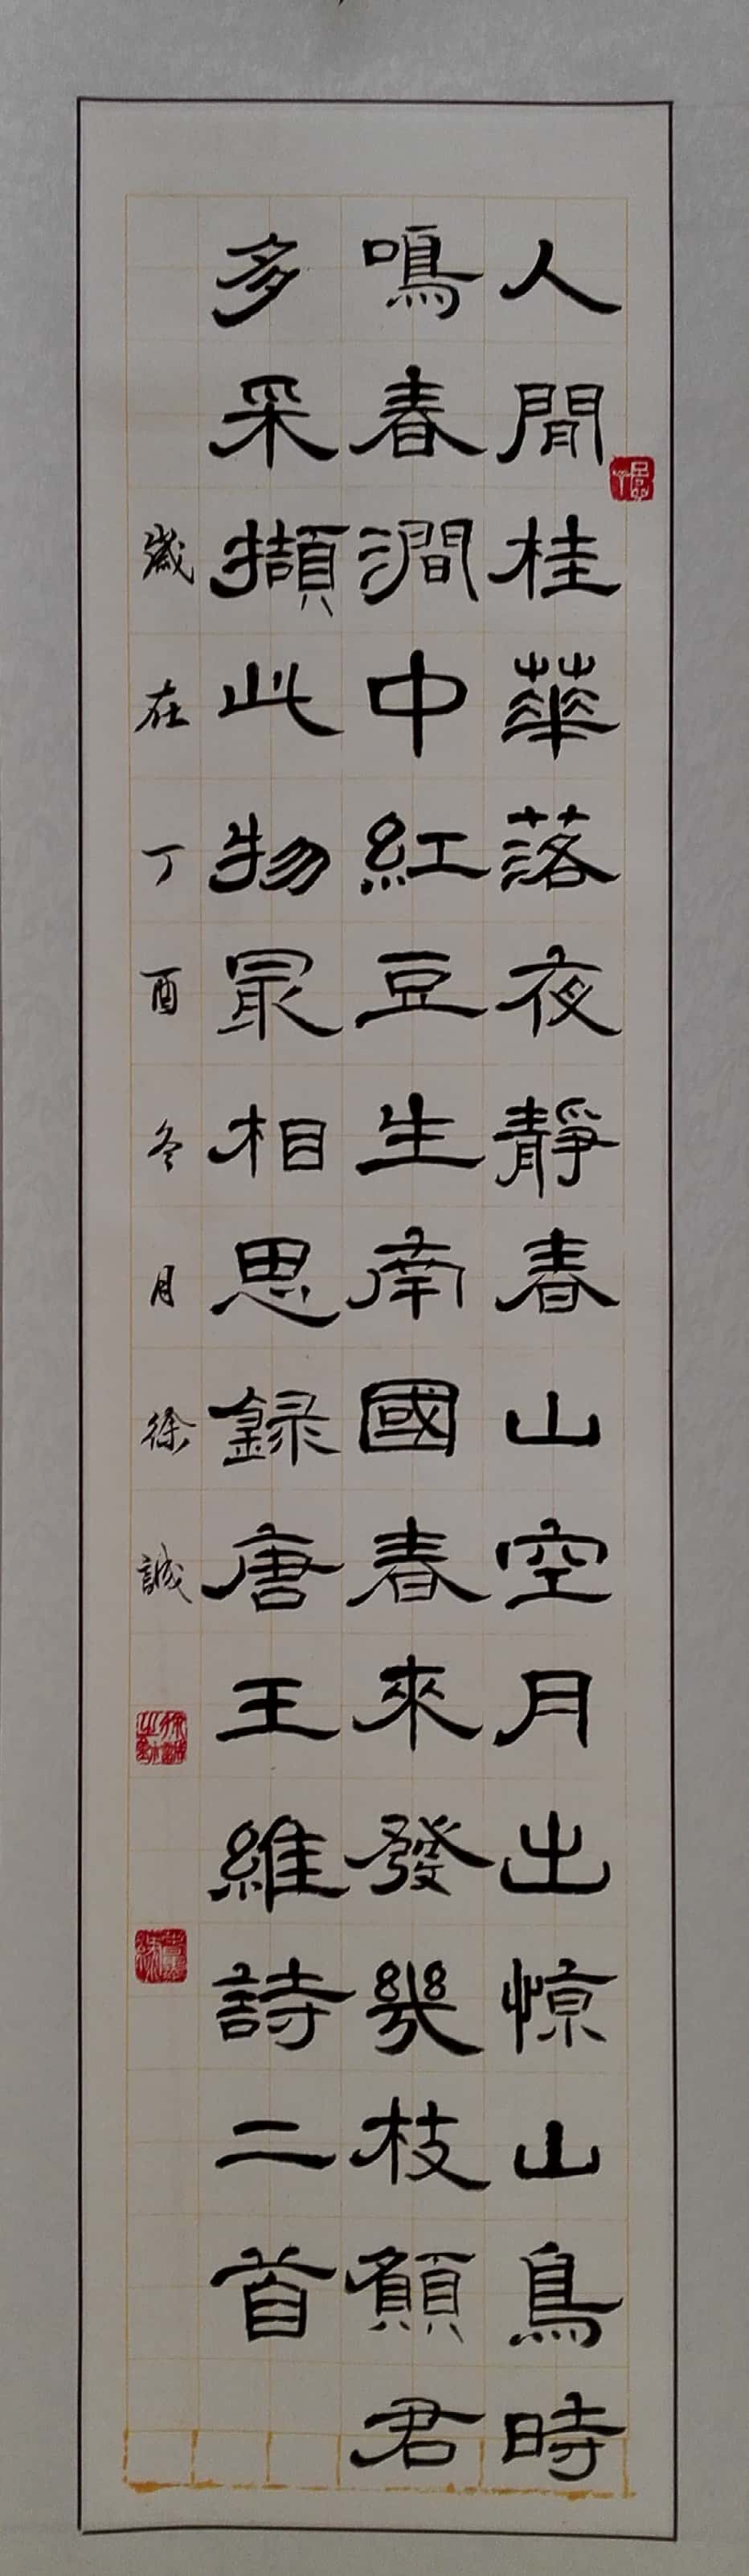 人閒桂華落夜靜春山空月出惊山鳥時
鳴春澗中紅豆生南國春來發幾枝願君
多采擷此物最相思録唐王維詩二首
歲在丁酉冬月徐誠